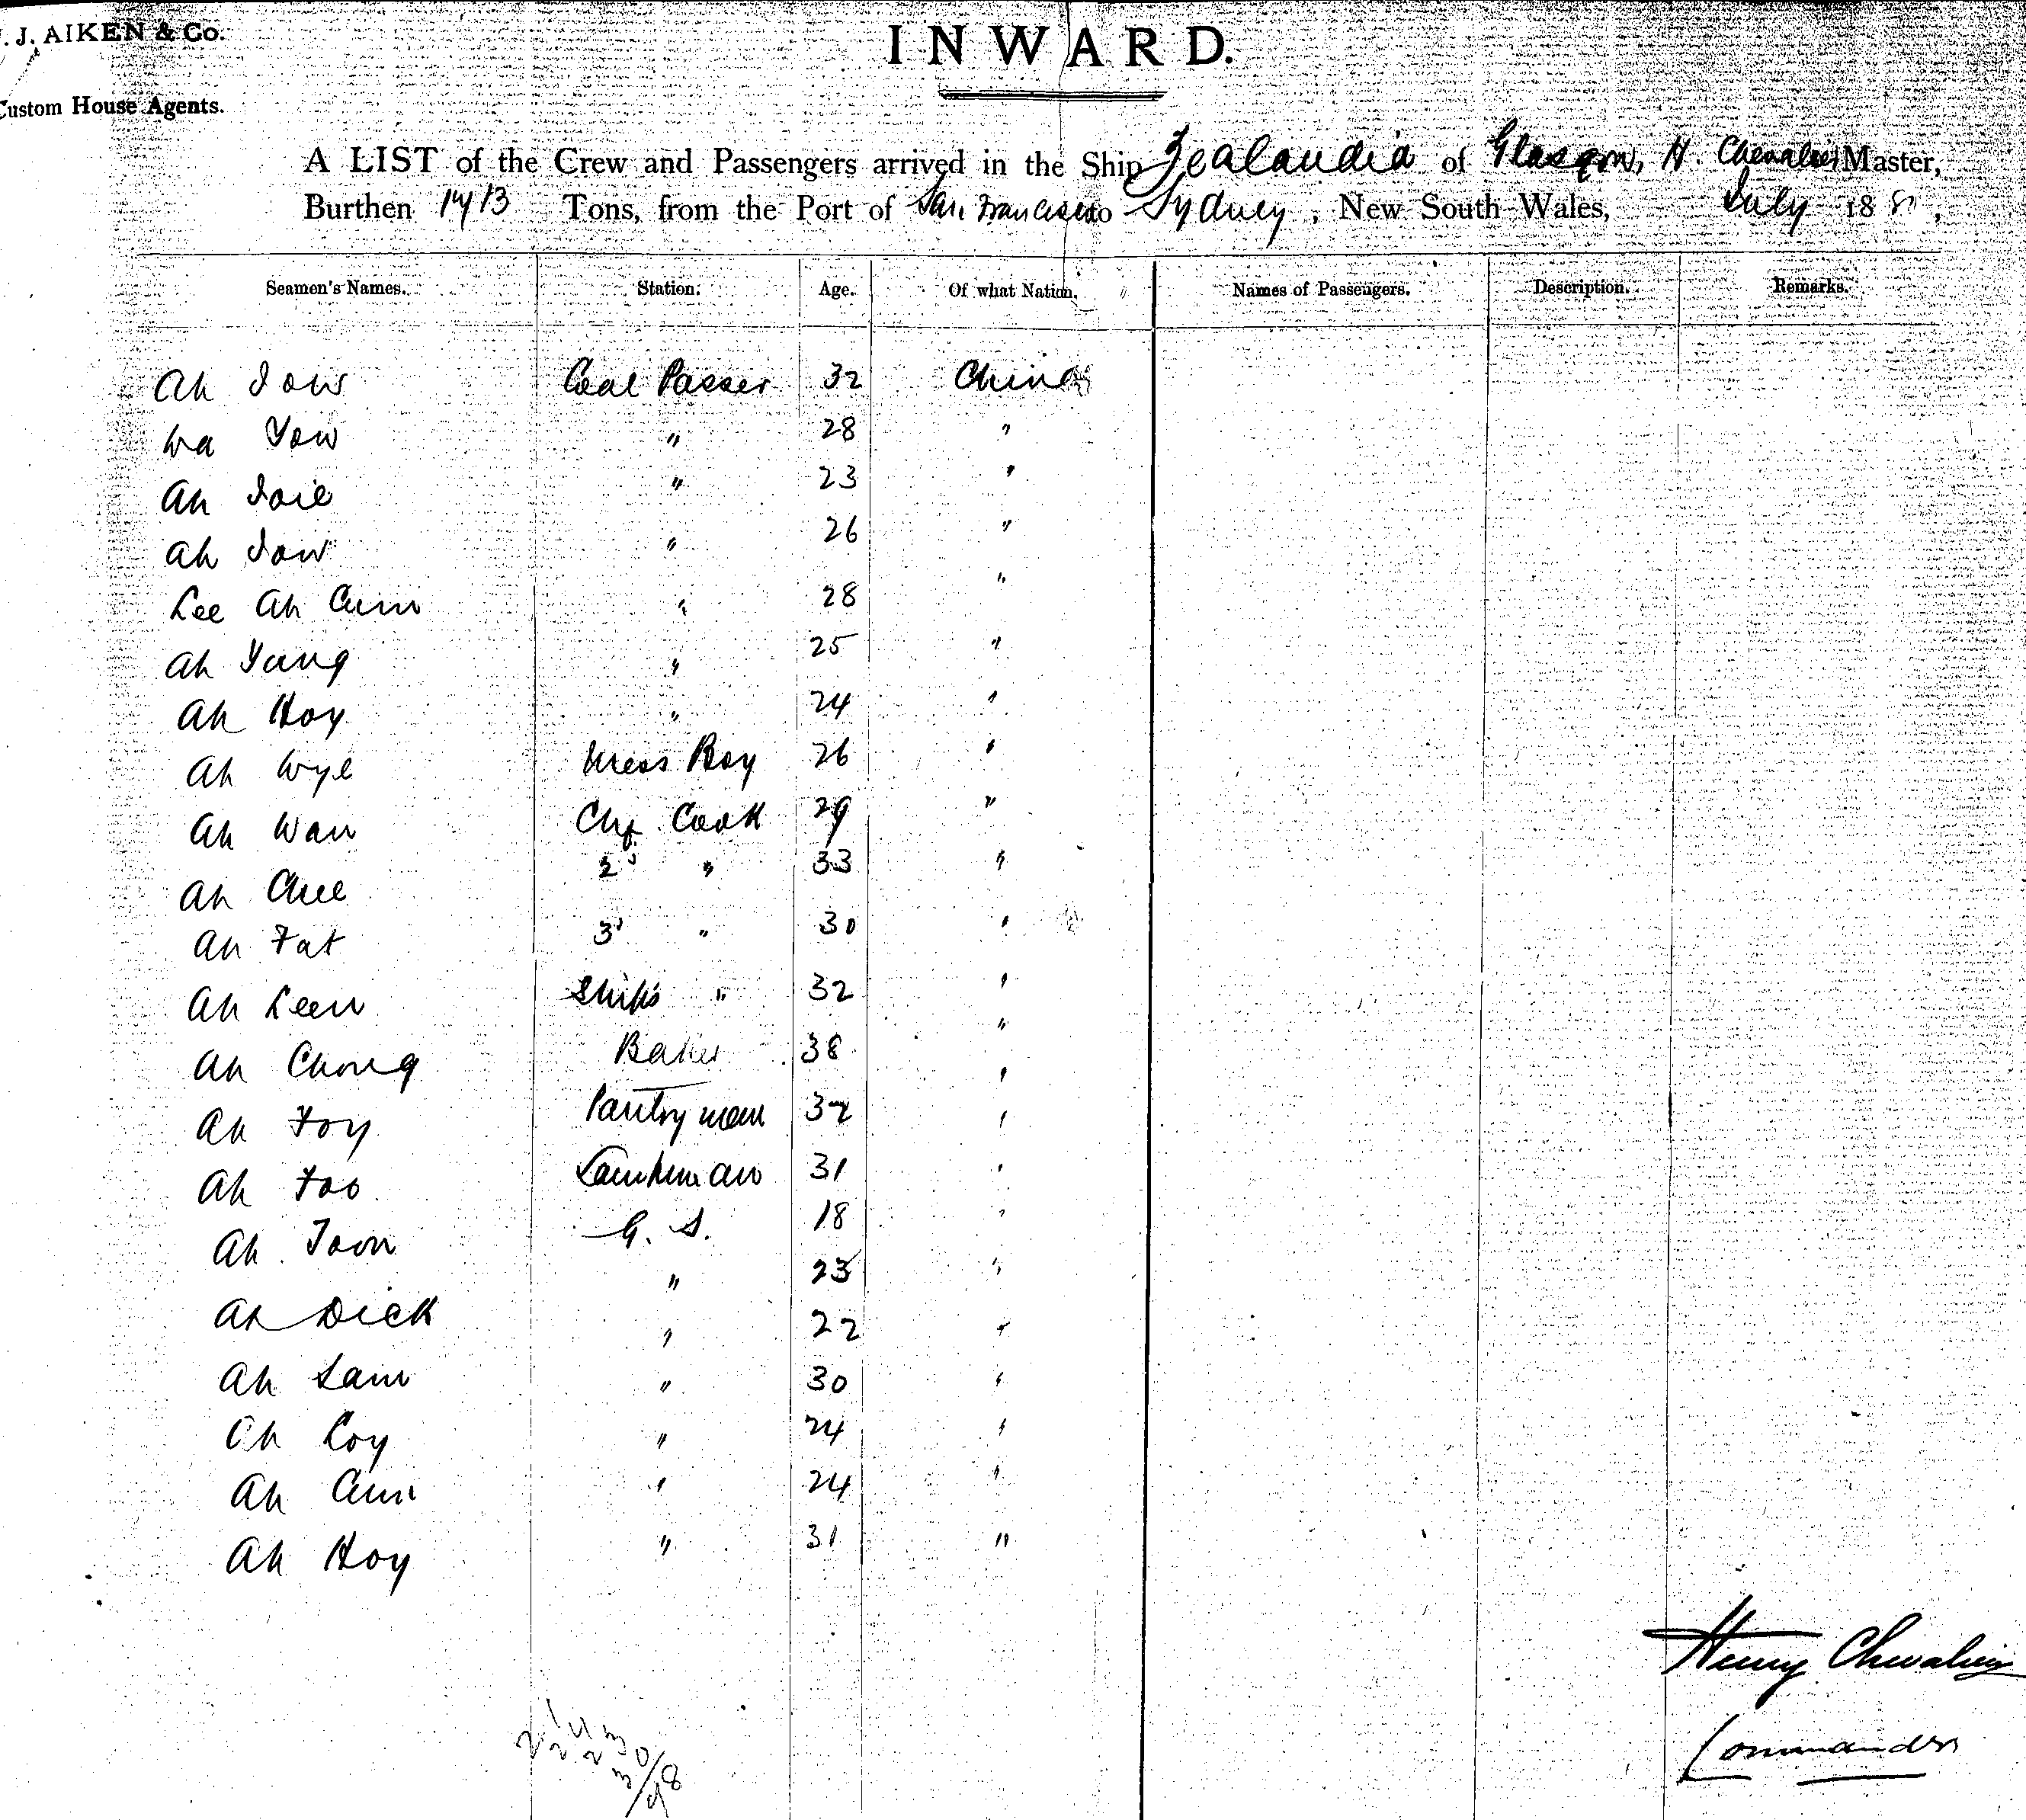 . J. AIKEN & Co.
Custom House Agents.
INWARD.
A LIST of the Crew and Passengers arrived in the Ship Zealandia of Glasgow, H. Chevalier Master,
Burthen Tons, from the Port of San Francisco to Sydney, New South Wales, July 18
Seamen's Names. Station. Age. Of what Nation. Names of Passengers. Description. Remarks.
Ah Coal Passer 32 China
Wa Yow " 28 "
Ah " 23 "
Ah " 26 "
Lee Ah " 28 "
Ah Yung " 25 "
Ah Hoy " 24 "
Ah Wye Mess Boy 26 "
Ah Wan Chf. Cook 29 "
Ah Chee 2d " 33 "
Ah Fat 3d " 30 "
Ah Leen Ship's " 32 "
Ah Chong Baker 38 "
Ah Foy Pantry man 32 "
Ah Foo Lampman 31 "
Ah Toon G. S. 18 "
Ah Dick " 23 "
Ah Sam " 22 "
Ah Loy " 30 "
Ah " 24 "
Ah Hoy " 24 "
" 31 "
Henry Chevalier
Commander